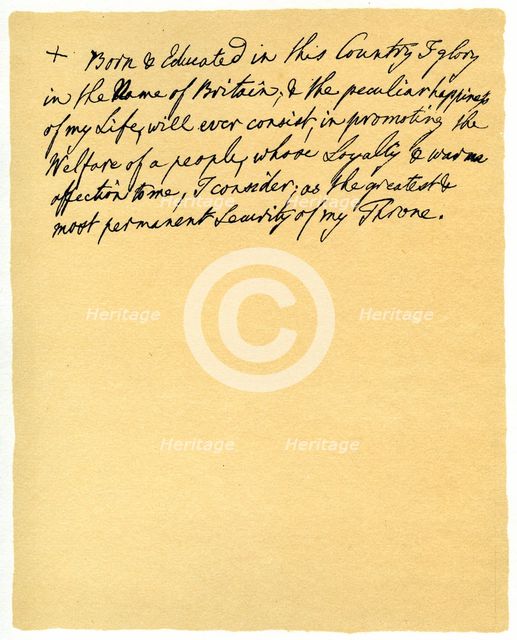 + Born & Educated in this Country I glory
in the Name of Britain, & the peculiar happiness
of my Life, will ever consist, in promoting the
Welfare of a people, whose Loyalty & warm
affection to me, I consider, as the greatest &
most permanent Security of my Throne.
Heritage Heritage
Heritage Heritage
©
Heritage Heritage
Heritage Heritage